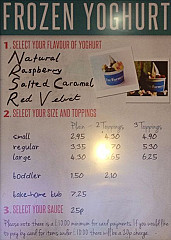 FROZEN YOGHURT
1. SELECT YOUR FLAVOUR OF YOGHURT
Natural
Raspberry
Salted Caramel
Red Velvet
2. SELECT YOUR SIZE AND TOPPINGS
Plain 2 Toppings 3 Toppings
small 2.95 4.30 4.90
regular 3.35 5.30
large 4.30 5.65 6.25
toddler 1.50 2.10
take-home tub 7.25
3. SELECT YOUR SAUCE 25p
Please note there is a £10.00 minimum for card payments. If you would like
to pay by card for items under £10.00 there will be a 20p charge.